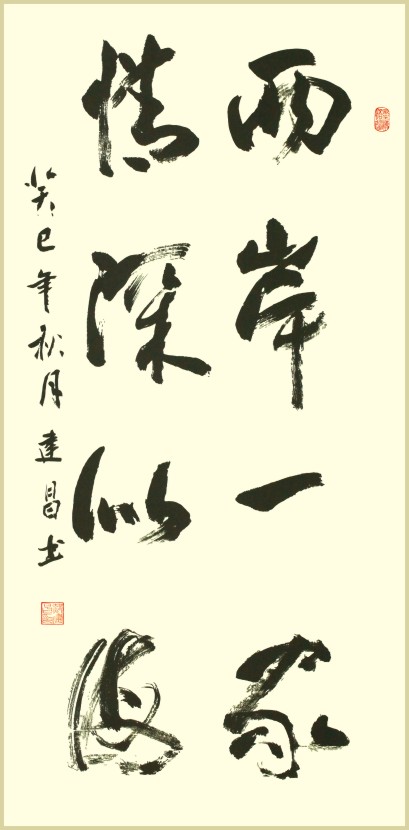 两岸一家
情深似海
癸巳年秋月达昌书